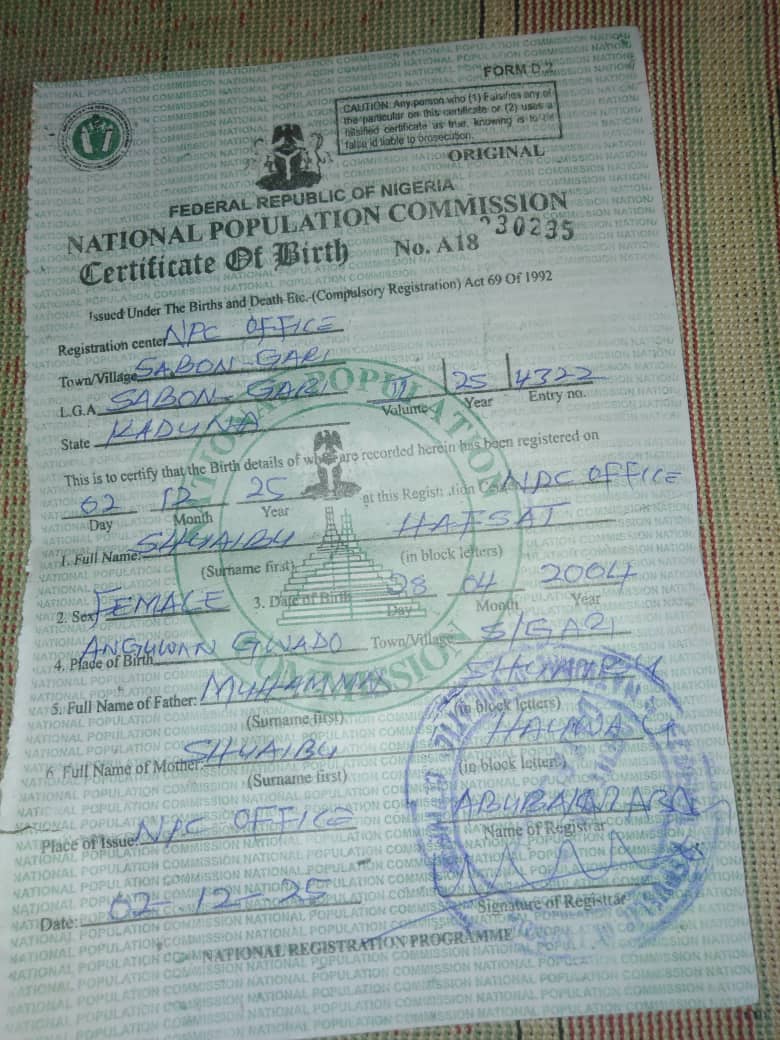 FORM D.2
CAUTION: Any person who (1) Falsifies any of
the particular on this certificate or (2) uses a
falsified certificate as true, knowing is to be
false id liable to prosecution.
ORIGINAL
FEDERAL REPUBLIC OF NIGERIA
NATIONAL POPULATION COMMISSION
Certificate Of Birth No. A18 230235
Issued Under The Births and Death Etc. (Compulsory Registration) Act 69 Of 1992
Registration center NPC OFFICE
Town/Village SABON-GARI
L.G.A. SABON-GARI 11 25 4322
Volume Year Entry no.
State KADUNA
This is to certify that the Birth details of are recorded herein has been registered on
02 12 25 at this NPC OFFICE
Day Month Year
1. Full Name: SHUAIBU HAFSAT
(Surname first) (in block letters)
2. Sex FEMALE 3. Date of Birth 28 04 2004
Day Month Year
4. Place of Birth ANGUWAN GWADO Town/Village S/GARI
5. Full Name of Father: SHUAIBU
(Surname first) (in block letters)
6. Full Name of Mother: SHUAIBU
(Surname first) (in block letters)
Place of Issue: NPC OFFICE
Name of Registrar
Date: 02-12-25
Signature of Registrar
NATIONAL REGISTRATION PROGRAMME
NATIONAL POPULATION COMMISSION